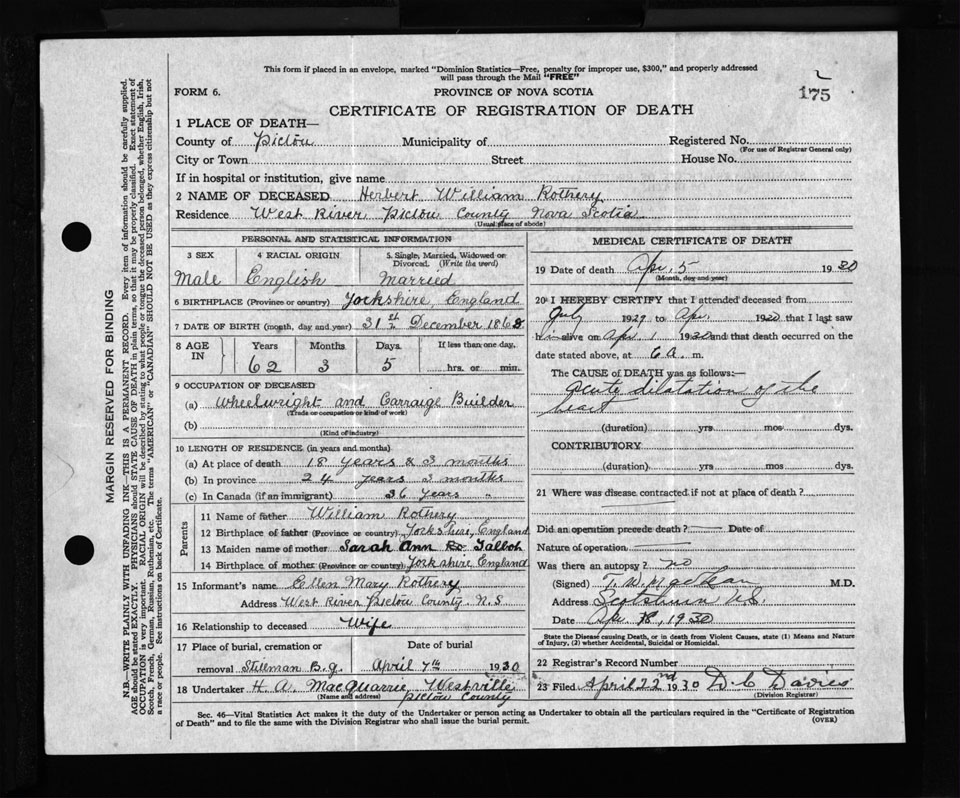 This form if placed in an envelope, marked "Dominion Statistics—Free, penalty for improper use, $300," and properly addressed
will pass through the Mail "FREE"
FORM 6.
PROVINCE OF NOVA SCOTIA
175
CERTIFICATE OF REGISTRATION OF DEATH
1 PLACE OF DEATH—
County of Pictou Municipality of Registered No.
(For use of Registrar General only)
City or Town Street House No.
If in hospital or institution, give name
2 NAME OF DECEASED Herbert William Rothery
Residence West River Pictou County Nova Scotia
(Usual place of abode)
PERSONAL AND STATISTICAL INFORMATION
3 SEX 4 RACIAL ORIGIN 5 Single, Married, Widowed or
Divorced. (Write the word)
Male English Married
6 BIRTHPLACE (Province or country) Yorkshire, England
7 DATE OF BIRTH (month, day and year) 31st December 186
8 AGE IN Years Months Days If less than one day.
62 3 5 hrs. or min.
9 OCCUPATION OF DECEASED
(a) Wheelwright and Carraige Builder
(Trade or occupation or kind of work)
(b)
(Kind of industry)
10 LENGTH OF RESIDENCE (in years and months)
(a) At place of death 18 years & 3 months
(b) In province 24 years 3 months
(c) In Canada (if an immigrant) 36 years "
Parents
11 Name of father William Rothery
12 Birthplace of father (Province or country) Yorkshire, England
13 Maiden name of mother Sarah Ann Talbot
14 Birthplace of mother (Province or country) Yorkshire England
15 Informant's name Ellen Mary Rothery
Address West River Pictou County. N.S
16 Relationship to deceased Wife
17 Place of burial, cremation or Date of burial
removal Stillman B.g. April 7th 1930
18 Undertaker H. A. MacQuarrie, Westville
(Name and address) Pictou County
MEDICAL CERTIFICATE OF DEATH
19 Date of death Apr. 5 1930
(Month, day and year)
20 I HEREBY CERTIFY that I attended deceased from
July 1929 to Apr. 1930 that I last saw
him alive on Apr. 1 1930 and that death occurred on the
date stated above, at 6 a. m.
The CAUSE of DEATH was as follows:—
Acute dilatation of the
heart
(duration) yrs. mos. dys.
CONTRIBUTORY
(duration) yrs. mos. dys.
21 Where was disease contracted if not at place of death?
Did an operation precede death? Date of
Nature of operation
Was there an autopsy? no
(Signed) M.D.
Address Scotsburn N.S.
Date Apr 1930
State the Disease causing Death, or in death from Violent Causes, state (1) Means and Nature
of Injury, (2) whether Accidental, Suicidal or Homicidal.
22 Registrar's Record Number
23 Filed April 22nd 1930 D C Davies
(Division Registrar)
Sec. 46—Vital Statistics Act makes it the duty of the Undertaker or person acting as Undertaker to obtain all the particulars required in the "Certificate of Registration
of Death" and to file the same with the Division Registrar who shall issue the burial permit.
(OVER)
MARGIN RESERVED FOR BINDING
N.B.—WRITE PLAINLY WITH UNFADING INK—THIS IS A PERMANENT RECORD. Every item of information should be carefully supplied.
AGE should be stated EXACTLY. PHYSICIANS should STATE CAUSE OF DEATH in plain terms, so that it may be properly classified. Exact statement of
OCCUPATION is very important. RACIAL ORIGIN will be described by stating to what people or tongue the deceased person belonged, whether English, Irish,
Scotch, French, German, Russian, Ruthenian, etc. The terms "AMERICAN" or "CANADIAN" SHOULD NOT BE USED as they express citizenship but not
a race or people. See instructions on back of Certificate.